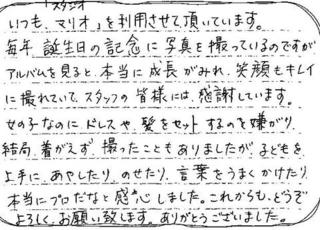 「スタジオ
いつも、マリオ」を利用させて頂いています。
毎年 誕生日の記念に写真を撮っているのですが
アルバムを見ると、本当に成長がみれ、笑顔もキレイ
に撮れていて、スタッフの皆様には、感謝しています。
女の子なのに ドレスや、髪をセットするのを嫌がり、
結局、着がえず、撮ったこともありましたが、子どもを
上手に、あやしたり、のせたり、言葉をうまくかけたり、
本当にプロだなと感心しました。これからも、どうぞ
よろしく、お願い致します。ありがとうございました。